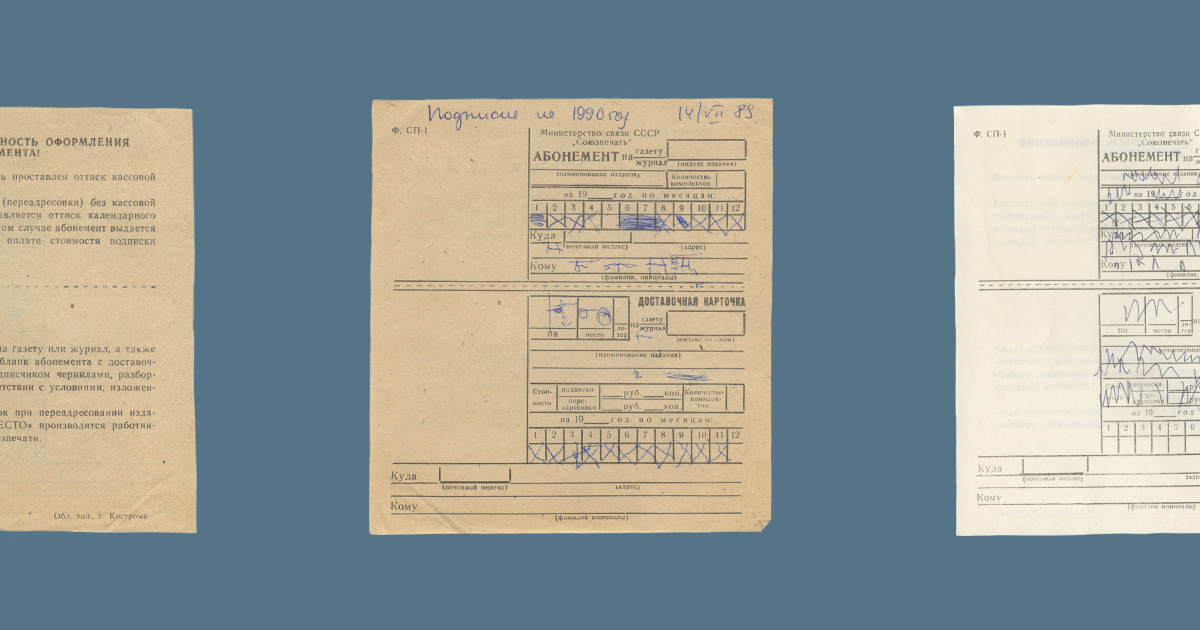 НОСТЬ ОФОРМЛЕНИЯ
МЕНТА!
ь проставлен оттиск кассовой
(переадресовки) без кассовой
авляется оттиск календарного
том случае абонемент выдается
оплате стоимости подписки
на газету или журнал, а также
бланк абонемента с доставоч-
дписчиком чернилами, разбор-
етствии с условиями, изложен-
ок при переадресовании изда-
ЕСТО» производится работни-
зпечати.
Обл. тип., г. Кострома
1990 год 14/VII 89
Ф. СП-1
Министерство связи СССР
„Союзпечать"
АБОНЕМЕНТ на газету журнал
(индекс издания)
(наименование издания)
Количество комплектов
на 19 год по месяцам:
1 2 3 4 5 6 7 8 9 10 11 12
Куда
(почтовый индекс) (адрес)
Кому
(фамилия, инициалы)
ДОСТАВОЧНАЯ КАРТОЧКА
ПВ место ли-тер на газету журнал
(индекс издания)
(наименование издания)
Стои-мость подписки руб. коп. Количество комплек-тов
пере-адресовки руб. коп.
на 19 год по месяцам:
1 2 3 4 5 6 7 8 9 10 11 12
Куда
(почтовый индекс) (адрес)
Кому
(фамилия инициалы)
Ф. СП-1
Министерство связи С
„Союзпечать"
АБОНЕМЕНТ на
на 19 год
1 2 3 4 5 6
Куда
Кому
(фамилия,
ПВ место ли-тер
подписки
переадресовки
на 19 год
1 2 3 4 5 6
Куда
(почтовый индекс) (адр
Кому
(фамилия инициалы)